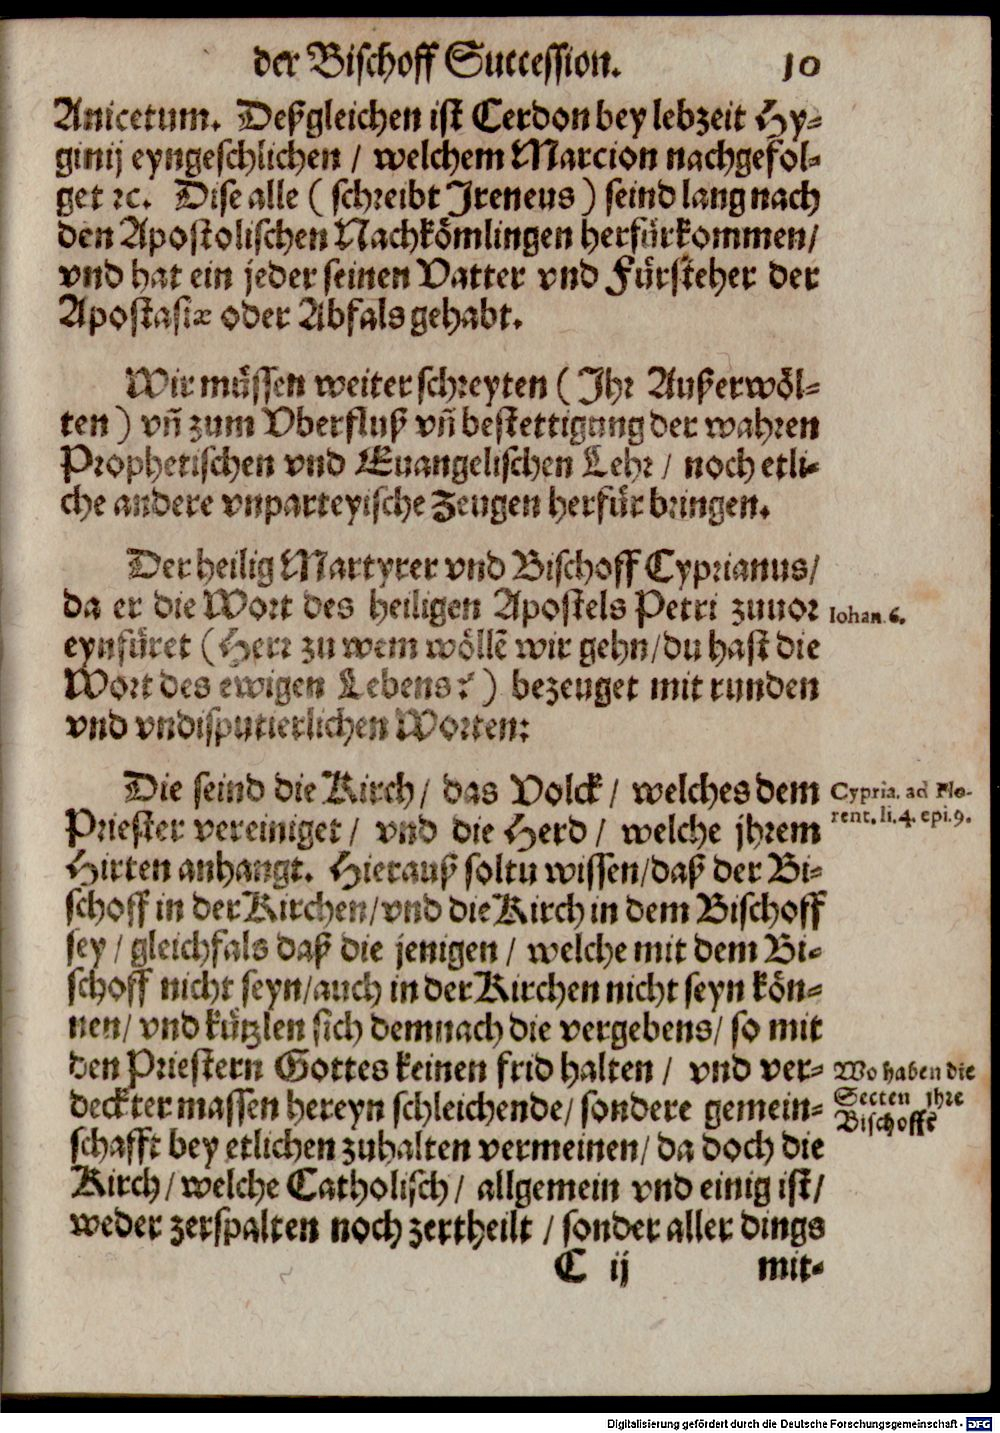 der Bischoff Succession. 10
Anicetum. Deßgleichen ist Cerdon bey lebzeit Hy-
ginij eyngeschlichen / welchem Marcion nachgefol-
get ꝛc. Dise alle ( schreibt Ireneus ) seind lang nach
den Apostolischen Nachkömlingen herfürkommen/
vnd hat ein jeder seinen Vatter vnd Fürsteher der
Apostasiæ oder Abfals gehabt.
Wir müssen weiter schreyten ( Ihr Außerwöl-
ten ) vñ zum Vberfluß vñ bestettigung der wahren
Prophetischen vnd Euangelischen Lehr / noch etli-
che andere vnparteyische Zeugen herfür bringen.
Der heilig Martyrer vnd Bischoff Cyprianus/
da er die Wort des heiligen Apostels Petri zuuor
Iohan. 6.
eynfüret ( Herr zu wem wöllẽ wir gehn/du hast die
Wort des ewigen Lebens? ) bezeuget mit runden
vnd vndisputierlichen Worten:
Die seind die Kirch / das Volck / welches dem
Cypria. ad Flo-
Priester vereiniget / vnd die Herd / welche jhrem
rent. li. 4. epi. 9.
Hirten anhangt. Hierauß soltu wissen/daß der Bi-
schoff in der Kirchen/vnd die Kirch in dem Bischoff
sey / gleichfals daß die jenigen / welche mit dem Bi-
schoff nicht seyn/auch in der Kirchen nicht seyn kön-
nen/ vnd kützlen sich demnach die vergebens/ so mit
den Priestern Gottes keinen frid halten / vnd ver-
Wo haben die
deckter massen hereyn schleichende/ sondere gemein-
Secten jhre
Bischoffe
schafft bey etlichen zuhalten vermeinen/ da doch die
Kirch/ welche Catholisch/ allgemein vnd einig ist/
weder zerspalten noch zertheilt / sonder aller dings
C ij mit-
Digitalisierung gefördert durch die Deutsche Forschungsgemeinschaft - DFG